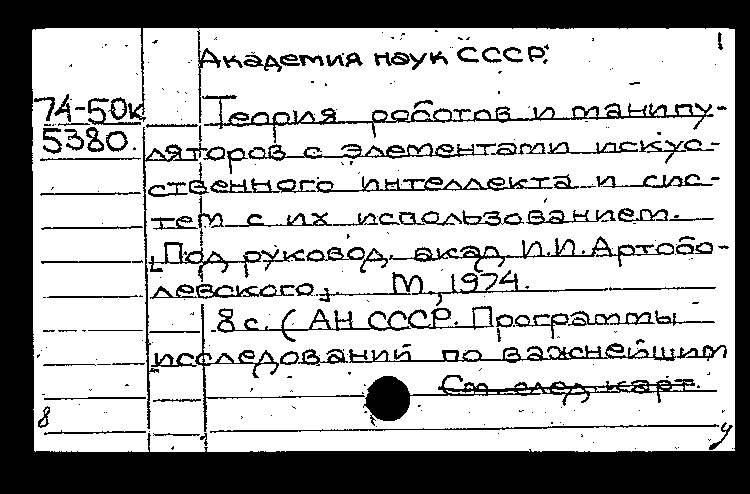 1
Академия наук СССР.
74-50к Теория роботов и манипу-
5380. ляторов с элементами искус-
ственного интеллекта и сис-
тем с их использованием.
[Под руковод. акад. И.И. Артобо-
левского]. М., 1974.
8 с. (АН СССР. Программы
исследований по важнейшим
См. след. карт.
8
у